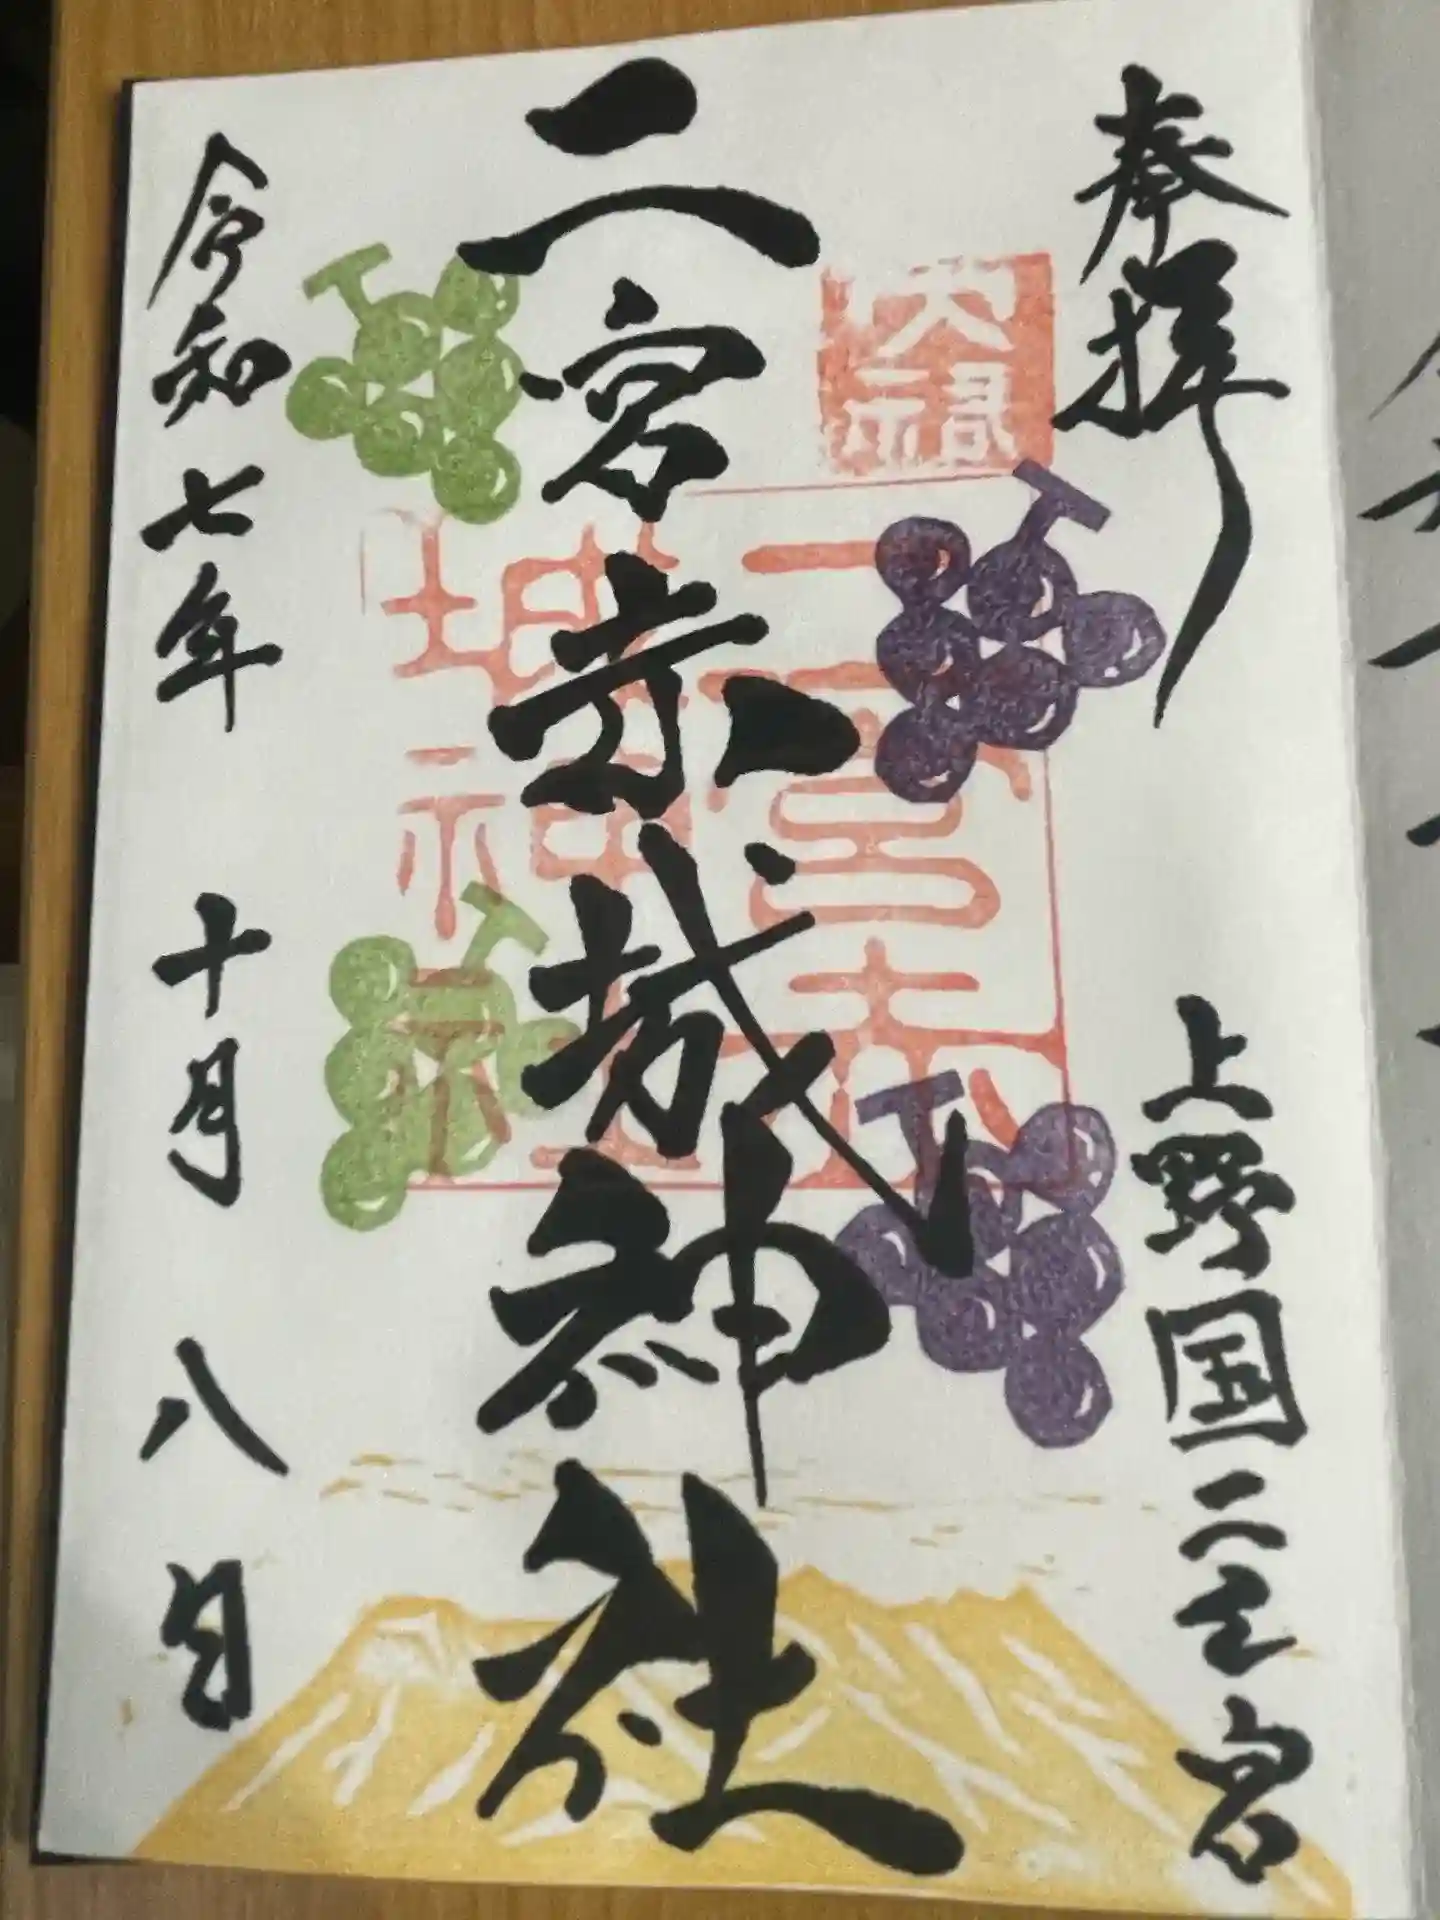 奉拝
上野国二之宮
大福
二宮赤城神社
二宮赤
城神社
令和七年十月八日